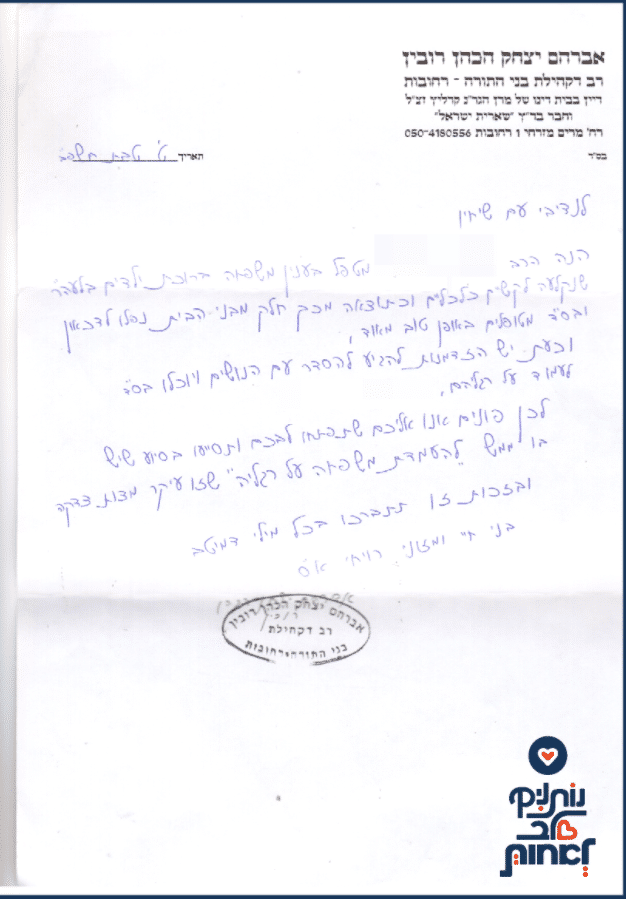 אברהם יצחק הכהן רובין
רב דקהילת בני התורה - רחובות
דיין בבית דינו של מרן הגר"נ קרליץ זצ"ל
וחבר בד"ץ "שארית ישראל"
רח' מרים מזרחי 1 רחובות 050-4180556
בס"ד
תאריך ט' טבת תשפ"ב
לנדיבי עם שיחיו
הנה הרב מטפל בענין משפחה ברוכת ילדים בלעה"ר
שנקלעה לקשיים כלכלים וכתוצאה מכך חלק מבני הבית נפלו לדכאון
ובס"ד מטופלים באופן טוב מאוד,
וכעת יש הזדמנות להגיע להסדר עם הנושים ויוכלו בס"ד
לעמוד על רגליהם,
לכן פונים אנו אליכם שתפתחו לבכם ותסייעו בסיוע שיש
בו ממש "להעמדת משפחה על רגליה" שזו עיקר מצות צדקה
ובזכות זו תתברכו בכל מילי דמיטב
בני חיי ומזוני רויחי אכי"ר
אברהם יצחק הכהן רובין
רב דקהילת
בני התורה רחובות
נותנים
לב
לאחות